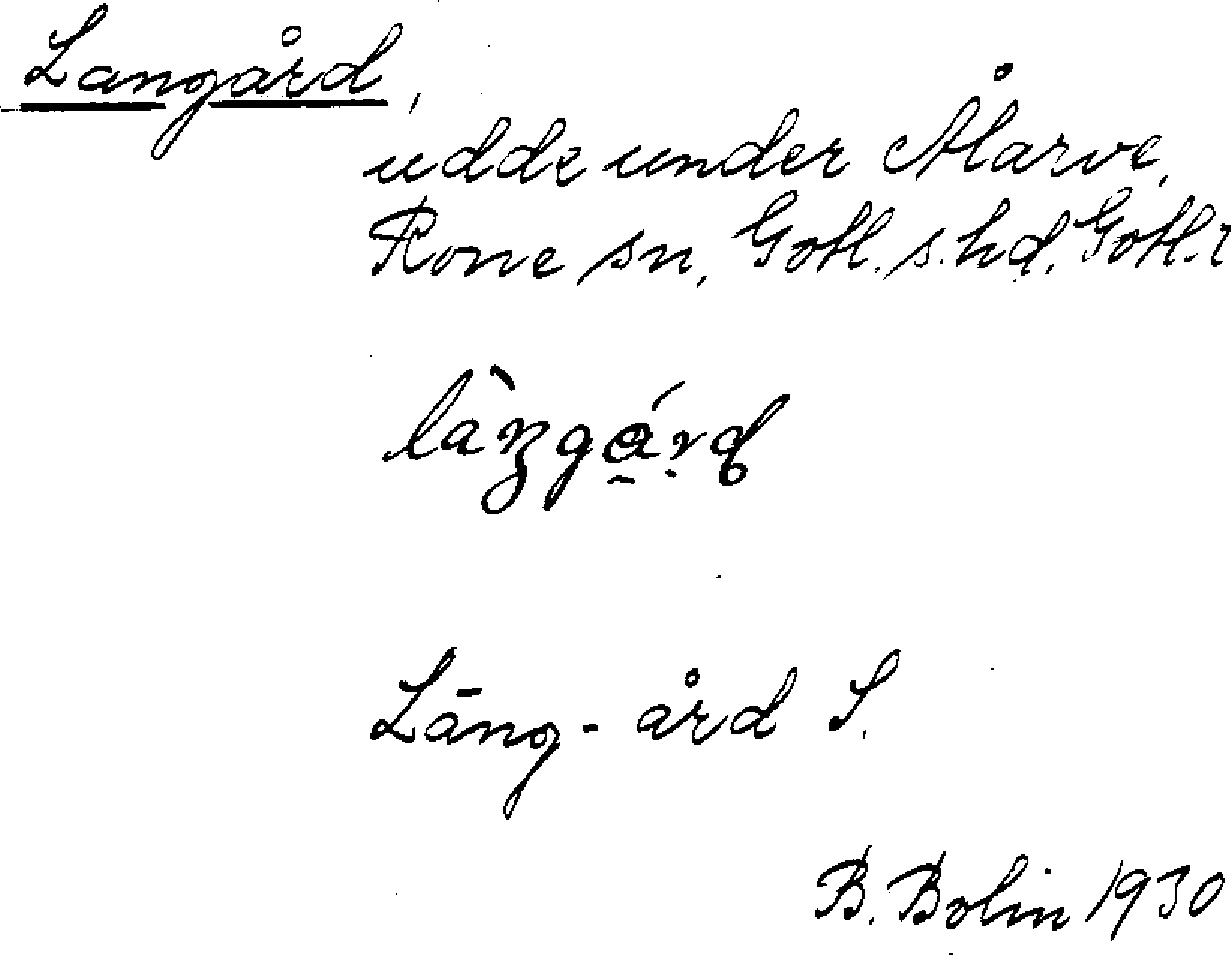 Langård,
udde under Ålarve,
Rone sn, Gotl. s. hd. Gotl. l
Lāng-ård S.
B. Bolin 1930